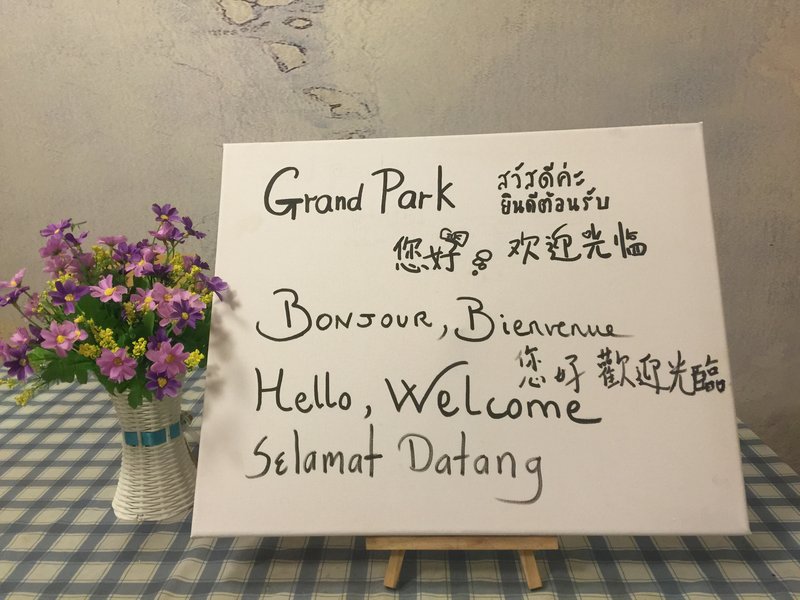 Grand Park
สวัสดีค่ะ
ยินดีต้อนรับ
您好 欢迎光临
Bonjour, Bienvenue
您好 歡迎光臨
Hello, Welcome
Selamat Datang